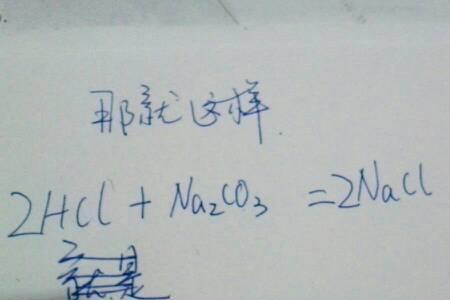 那就这样
2HCl + Na₂CO₃ =2NaCl